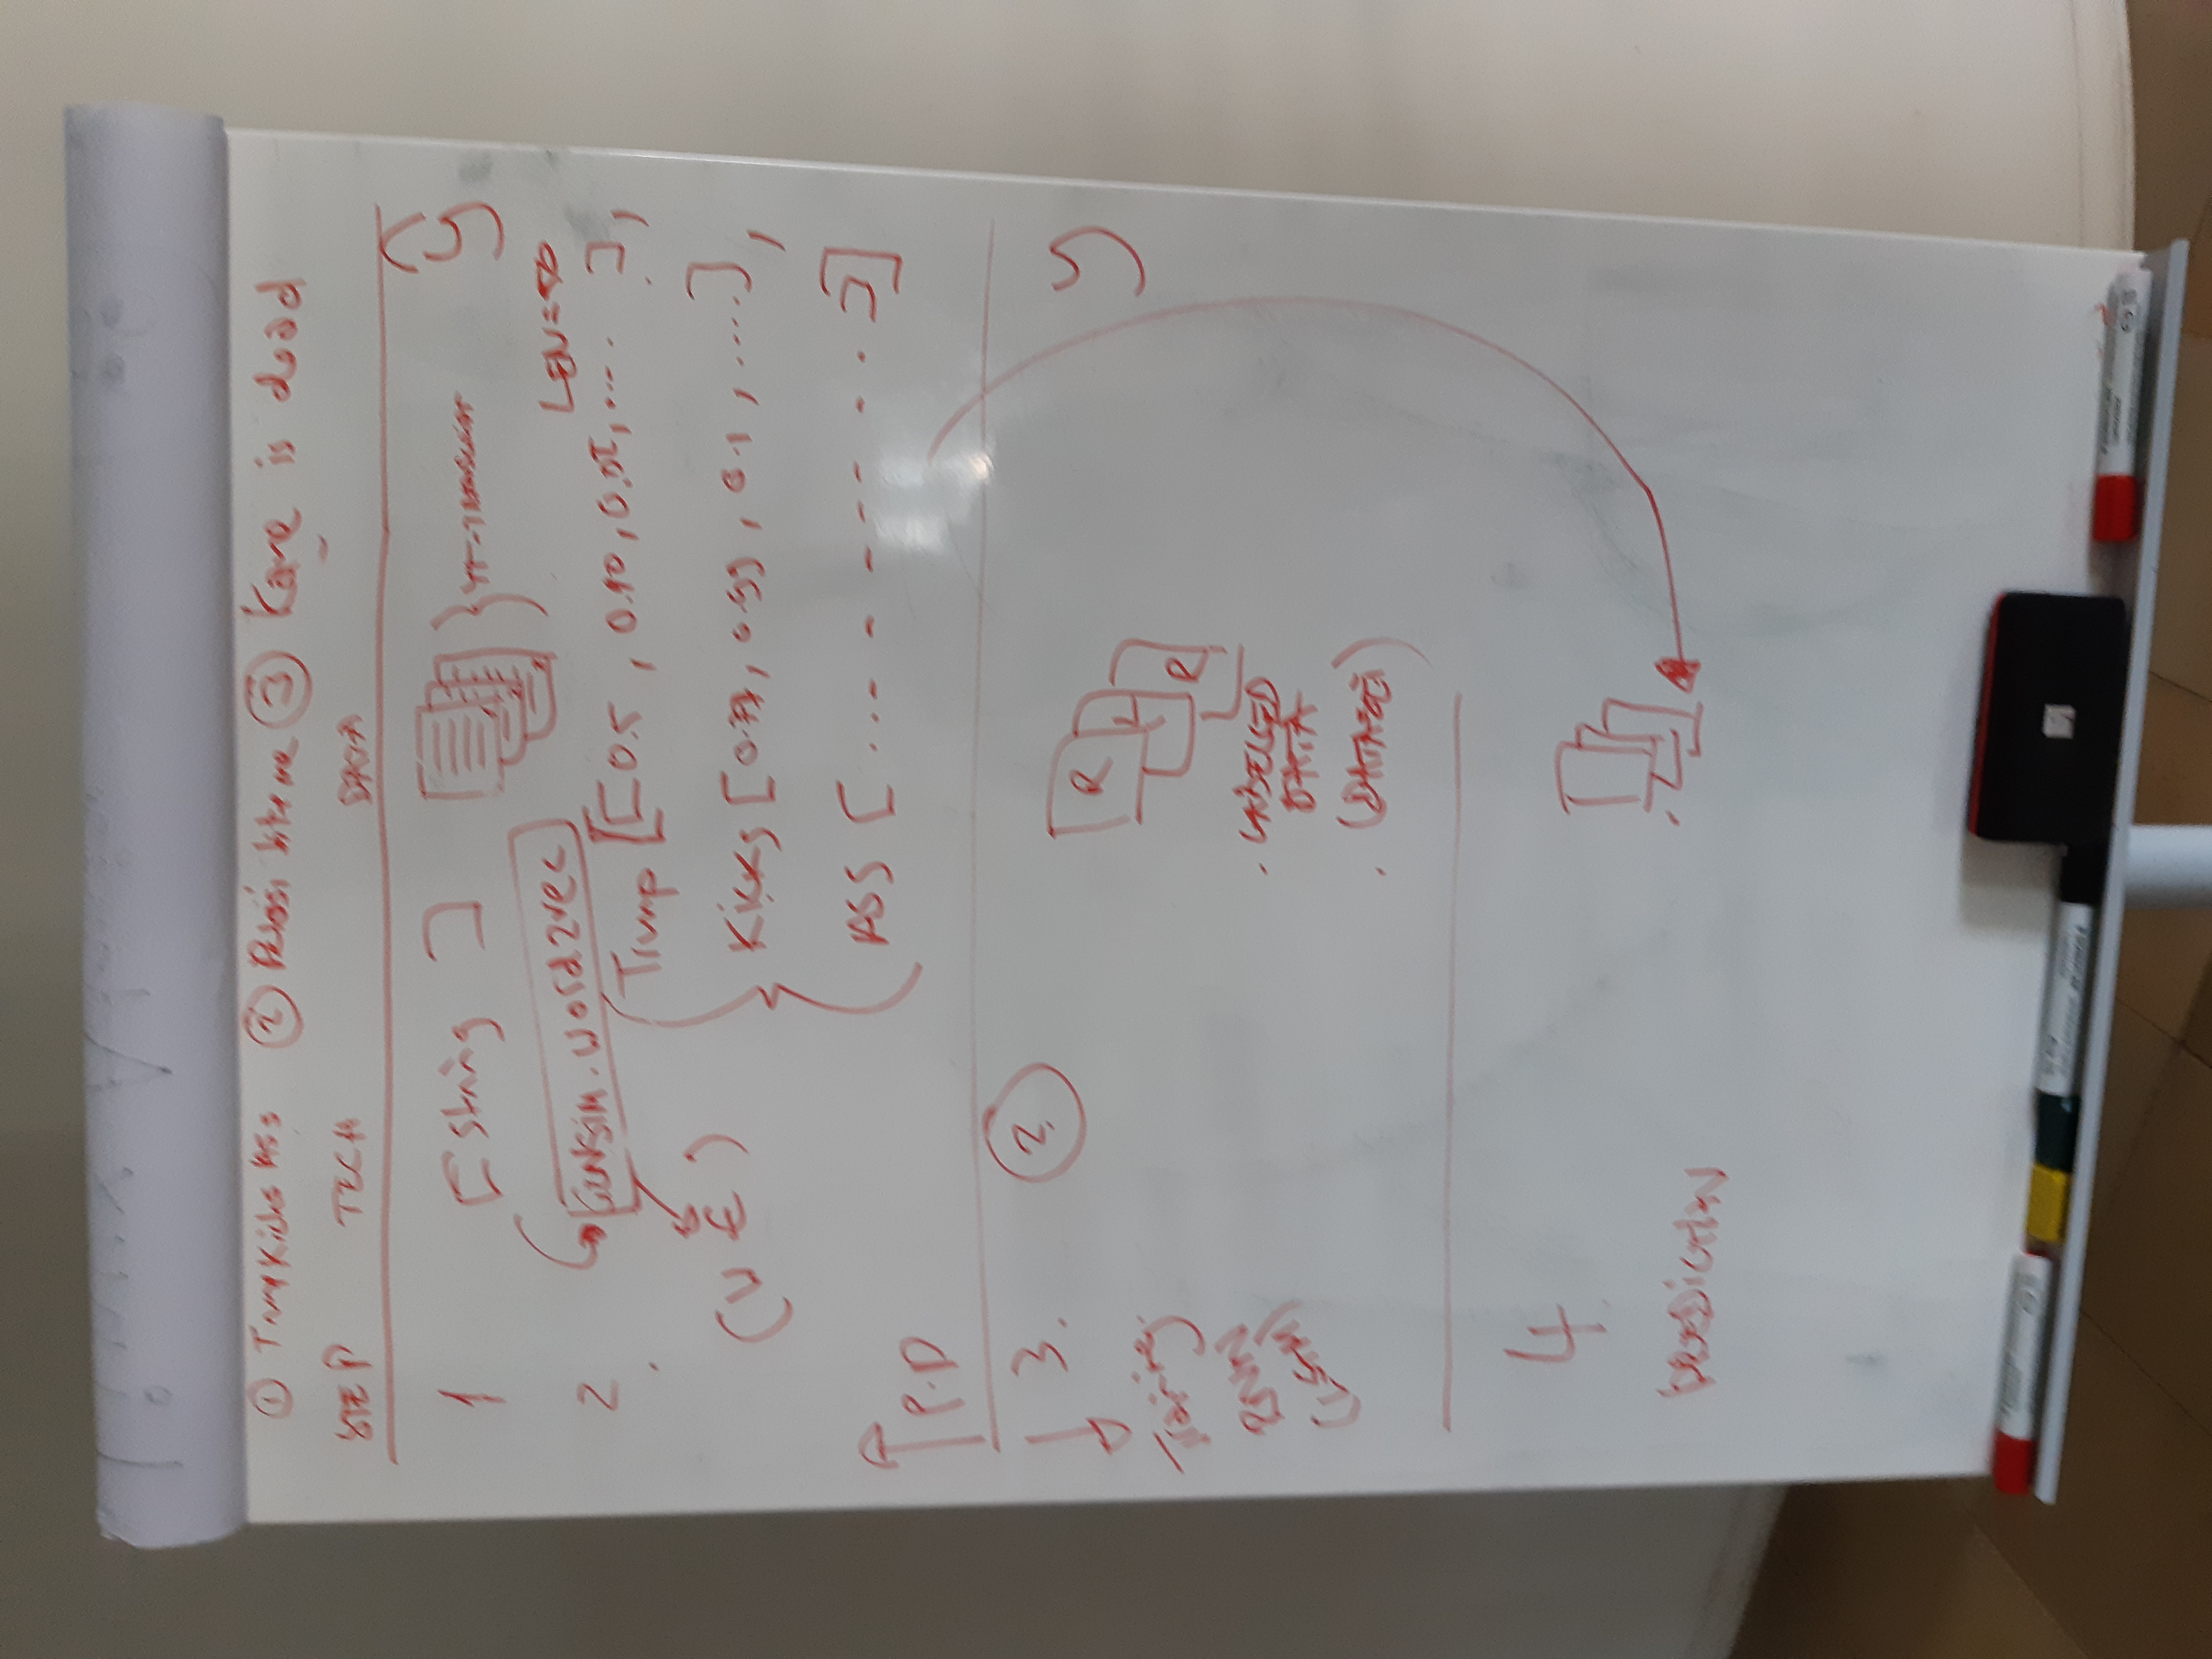 ① Trump Kicks Ass ② Pelosi bite me ③ Kanye is dead
STEP TECH DATA
1 [String ] } YT-TRANSCRIPT ŷ
2. GENSIM.Word2vec LEN=50
Trump [[0.5, 0.90, 0.02, .... ],
(WE) Kicks [0.77, 0.99, 0.1, ....],
ASS [... - - -- - . . ]]
P.D
3. ? R L R y
Training
RNN
(LSTM)
. LABELLED
DATA
. (DATASET)
4
PREDICTION